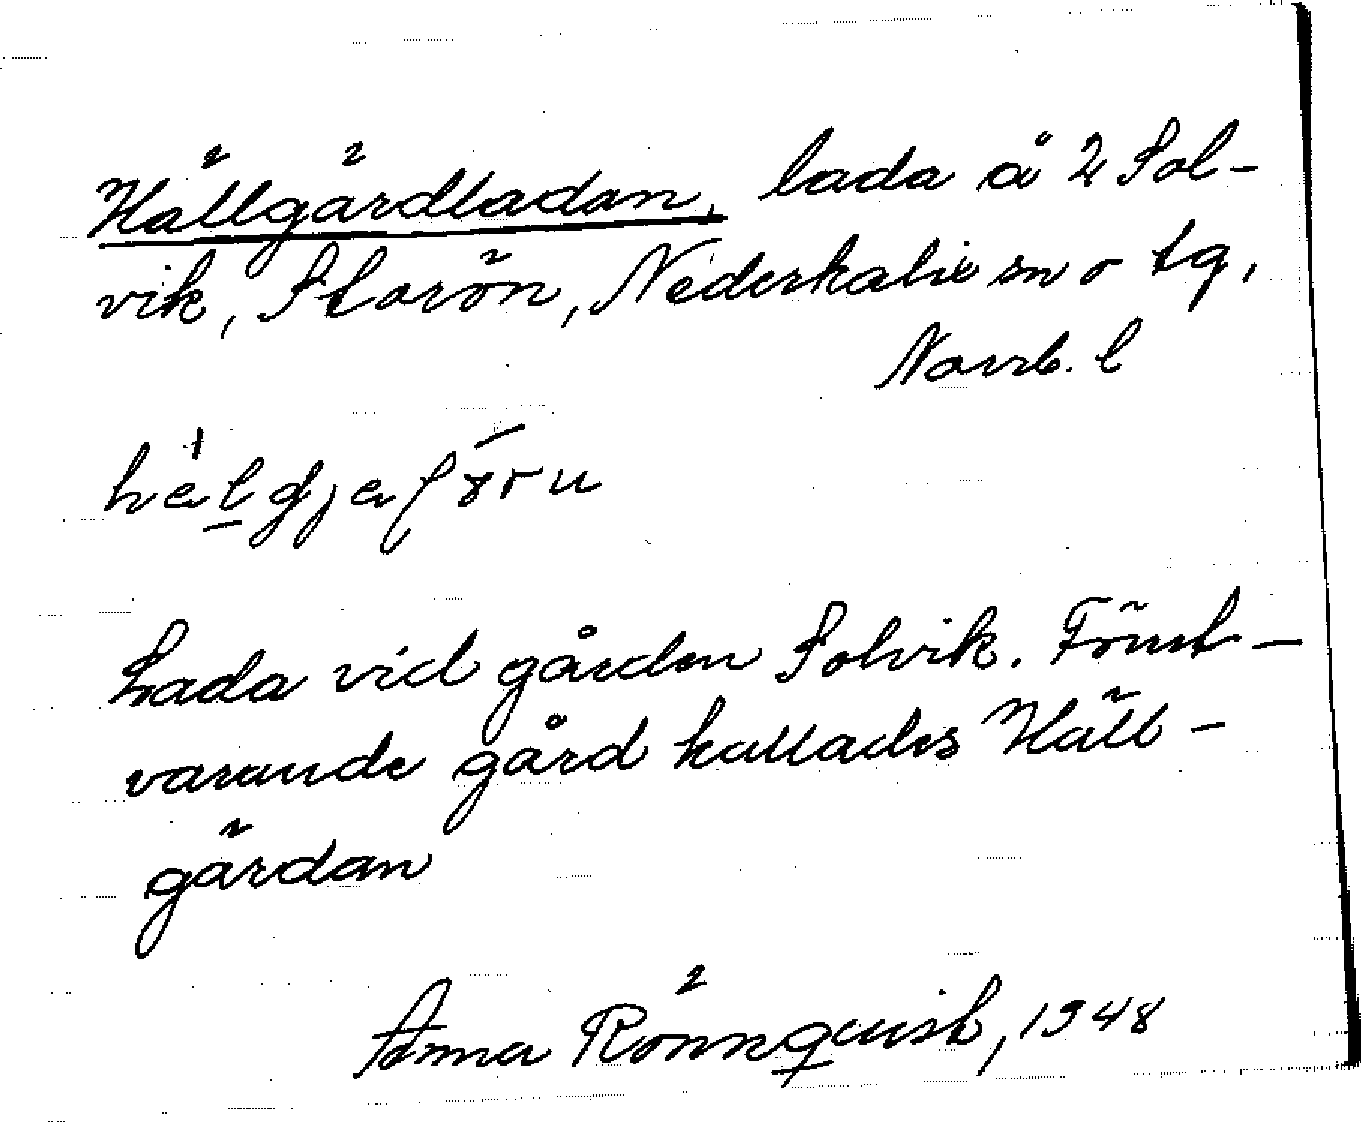 Hällgärdladan, lada å 2 Sol-
vik, Storön, Nederkalix sn o tg,
Norrb. l
Lada vid gården Solvik. Först-
varande gård kallades Häll-
gärdan
Anna Rönnquist, 1948